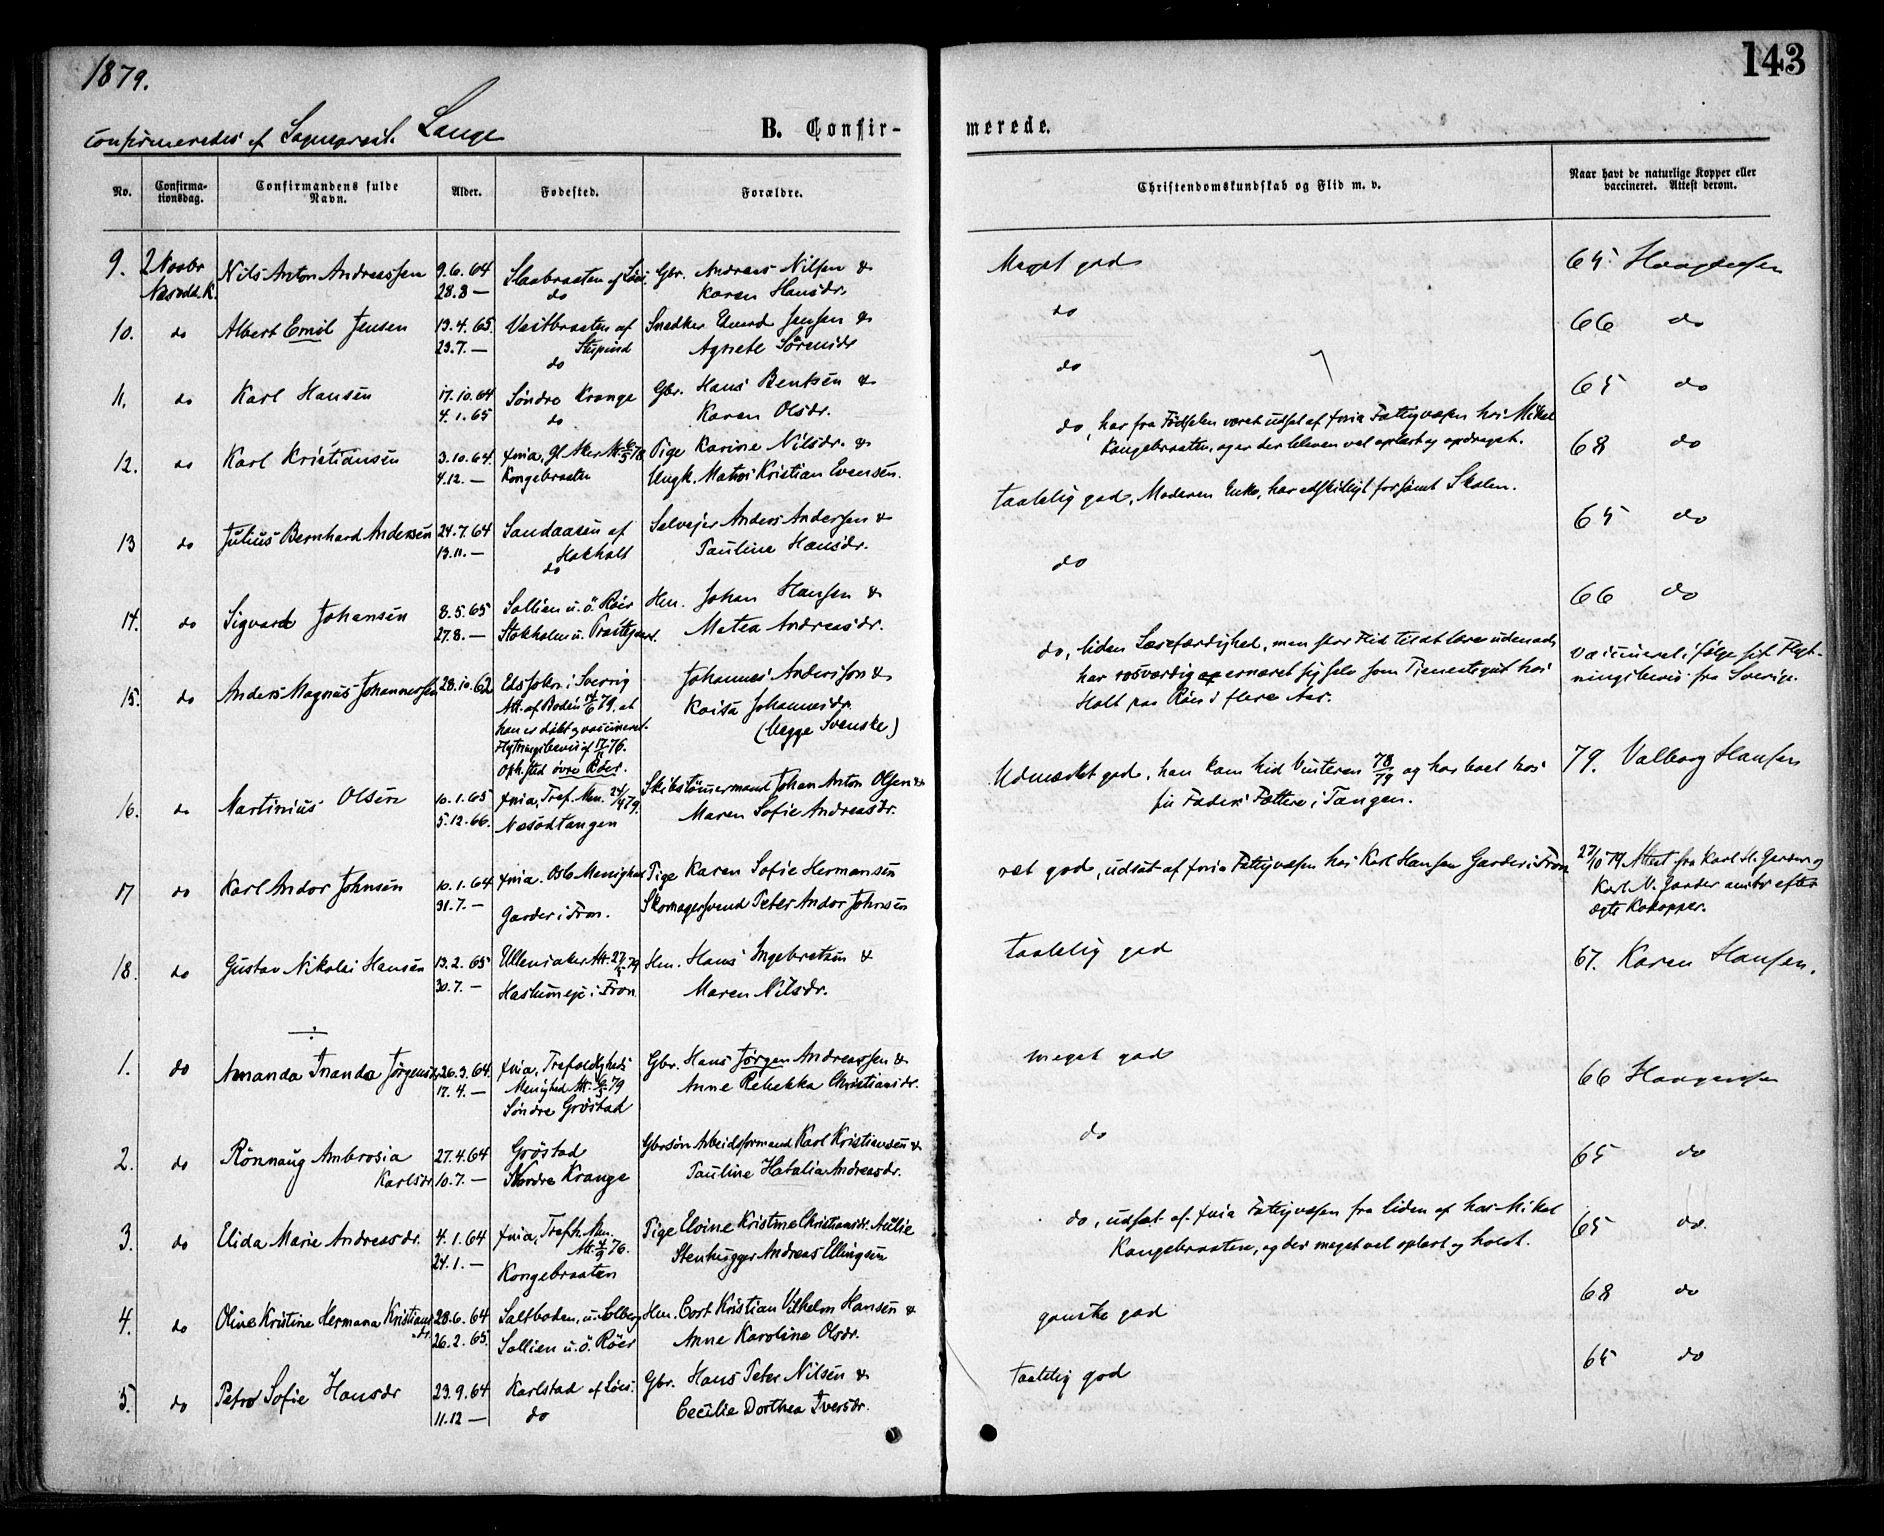 1879.
143
Confirmeredes af Sognepræst. Lange
B. Confir-
merede.
No.
Confirma-
tionsdag.
Confirmandens fulde
Navn.
Alder.
Fødested.
Forældre.
Christendomskundskab og Flid m. v.
Naar havt de naturlige Kopper eller
vaccineret. Attest derom.
9. 2 Novbr Nils Anton Andreassen 9.6.64 Gbr. Andreas Nilsen &
Næsodd. K. 28.8 — do Karen Hansdr.
Meget god
65
10. do Albert Emil Jensen 13.4.65. Veitbraaten af Snedker Edvard Jensen &
23.7. — do Agnete Sörensdr
do
66 do
11. do Karl Hansen 17.10.64 Söndre Krange Gbr. Hans Bentsen &
4.1.65 do Karen Olsdr.
do
65 do
12. do Karl Kristiansen 3.10.64. Xnia, Gl. Aker Pige Karine Nilsdr. &
4.12. — Kongebraaten Ungk. Matros Kristian Evensen.
do, har fra Födselen været udsat af Xnia Fattigvæsen hos Mikal
Kongebraaten, og er der bleven vel oplært og opdraget.
68 do
13 do Julius Bernhard Andersen 24.7.64 Sandaasen af Selvejer Anders Andersen &
13.11. — Hokholt Pauline Hansdr.
do
taalelig god, Moderen Enke, har forsömt Skolen.
65 do
14. do Sigvard Johansen 8.5.65 Sollien u. ö. Röer Hm. Johan Hansen &
27.8. — Stokholm u. Præstegaard. Matea Andreasdr.
do
66 do
15. do Anders Magnus Johannessen 28.10.62 Eds Sokn. i Sverrig Johannes Andersson &
Att. af 79, at Kaisa Johannesdr.
han er döbt og vaccineret. (begge Svenske)
Flytningsbevis af 76.
Oph.sted övre Röer.
do, liden Læsefærdighed, men stor Flid til at lære udenad,
har rosværdig ernæret sig selv som Tjenestegut hos
Holt paa Röer i flere Aar.
vaccineret ifölge sit Flyt-
ningsbevis fra Sverige.
16. do Martinius Olsen 10.1.65 Xnia, Tref. Men. 79. Skibstömmermand Johan Anton Olsen &
5.12.66. Næsodtangen Maren Sofie Andreasdr.
Udmærket god, han kom hid Vinteren 78/79 og har boet hos
sin Faders Fættere i Tangen.
79. Valborg Hansen
17 do Karl Andor Johnsen 10.1.64 Xnia. Oslo Menighed Pige Karen Sofie Hermansen
31.7. — Garder i Fron. Skomagersvend Peter Andor Johnsen
ret god, udsat af Xnia Fattigvæsen hos Karl Hansen Garder i Fron
27/10 79 Attest fra Karl H. Garder og
Karl N. Garder
ægte Kokopper.
18. do Gustav Nikolai Hansen 13.2.65 Ullensaker Att. 79 Hm. Hans Ingebretsen &
30.7. — i Fron Maren Nilsdr.
taalelig god
67. Karen Hansen.
1. do Amanda Jörgensdr 26.3.64. Xnia, Trefoldigheds Gbr. Hans Jörgen Andreassen &
17.4. — Menighed Att. 79 Anne Rebekka Christiansdr.
Söndre Gröstad
meget god
66
2. do Rönnaug Ambrosia 27.4.64 Gröstad Gbrsön Arbeidsformand Karl Kristiansen &
Karlsdr 10.7. — Nordre Krange Pauline Andreasdr.
do
65 do
3. do Elida Marie Andreasdr. 4.1.64 Xnia, Trefh. Men. Pige Elvine Kristine Christiansdr. Aulie
24.1. — Att. 76. Stenhugger Andreas Ellingsen
Kongebraaten
do, udsat af Xnia Fattigvæsen fra liden af hos Mikal
Kongebraaten, og der meget vel oplært og holdt.
65 do
4. do Oline Kristine Hermana Kristians 28.6.64 Saltboden, u. Solberg Hm. Cort Kristian Vilhelm Hansen &
dr. 26.2.65. Sollien u. ö. Röer Anne Karoline Olsdr.
ganske god
68 do
5. do Petra Sofie Hansdr 23.9.64 Karlstad af Gbr. Hans Peter Nilsen &
11.12 — do Cecilie Dorthea Iversdr.
taalelig god
65 do